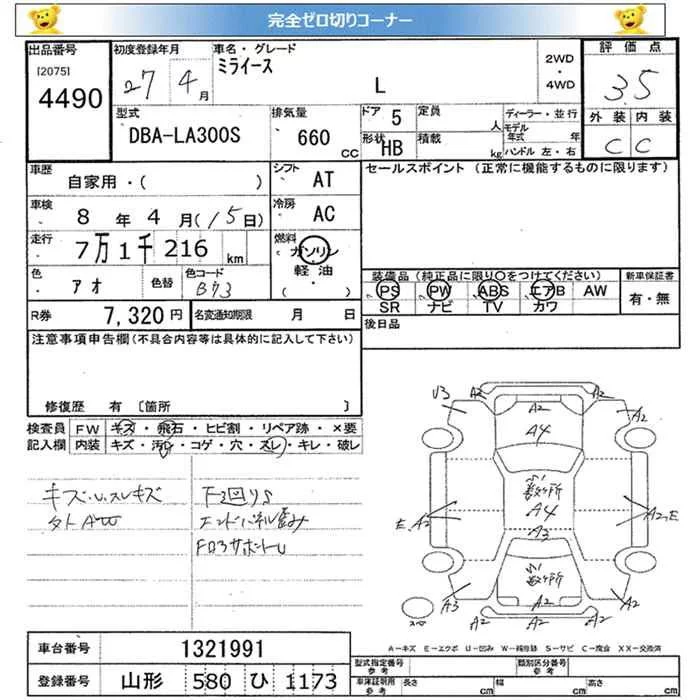 完全ゼロ切りコーナー
出品番号 [2075] 4490
初度登録年月 27 4月
車名・グレード ミライース L
2WD・4WD
評価点 3.5
外装 内装 C C
型式 DBA-LA300S
排気量 660 CC
ドア 5 定員 人
形状 HB 積載 kg
ディーラー・並行
モデル年式 年
ハンドル 左・右
車歴 自家用・( )
シフト AT
セールスポイント (正常に機能するものに限ります)
車検 8年4月(15日)
冷房 AC
走行 7万1千216km
燃料 ガソリン・軽油・( )
色 アオ 色替 色コード B73
装備品 (純正品に限り○をつけてください)
PS PW ABS エアB AW
SR ナビ TV カワ
新車保証書 有・無
R券 7,320円 名変通知期限 月 日
後日品
注意事項申告欄(不具合内容等は具体的に記入して下さい)
修復歴 有 〔箇所 〕
検査員記入欄
FW キズ・飛石・ヒビ割・リペア跡・×要
内装 キズ・汚レ・コゲ・穴・スレ・キレ・破レ
キズ・U・スレキズ
F3回りS
エンドパネル歪み
U3 A2 A2 A2 A2
A4
小数ヶ所
A4
A2
E.A2 A2,E
小数ヶ所
A3 A2 A2 A2 A2
スペ
A-キズ E-エクボ U-凹み W-補修跡 S-サビ C-腐食 XX-交換済
車台番号 1321991
登録番号 山形 580 ひ 1173
型式指定番号 参考 類別区分番号 参考
車庫証明用 参考 長さ cm 幅 cm 高さ cm